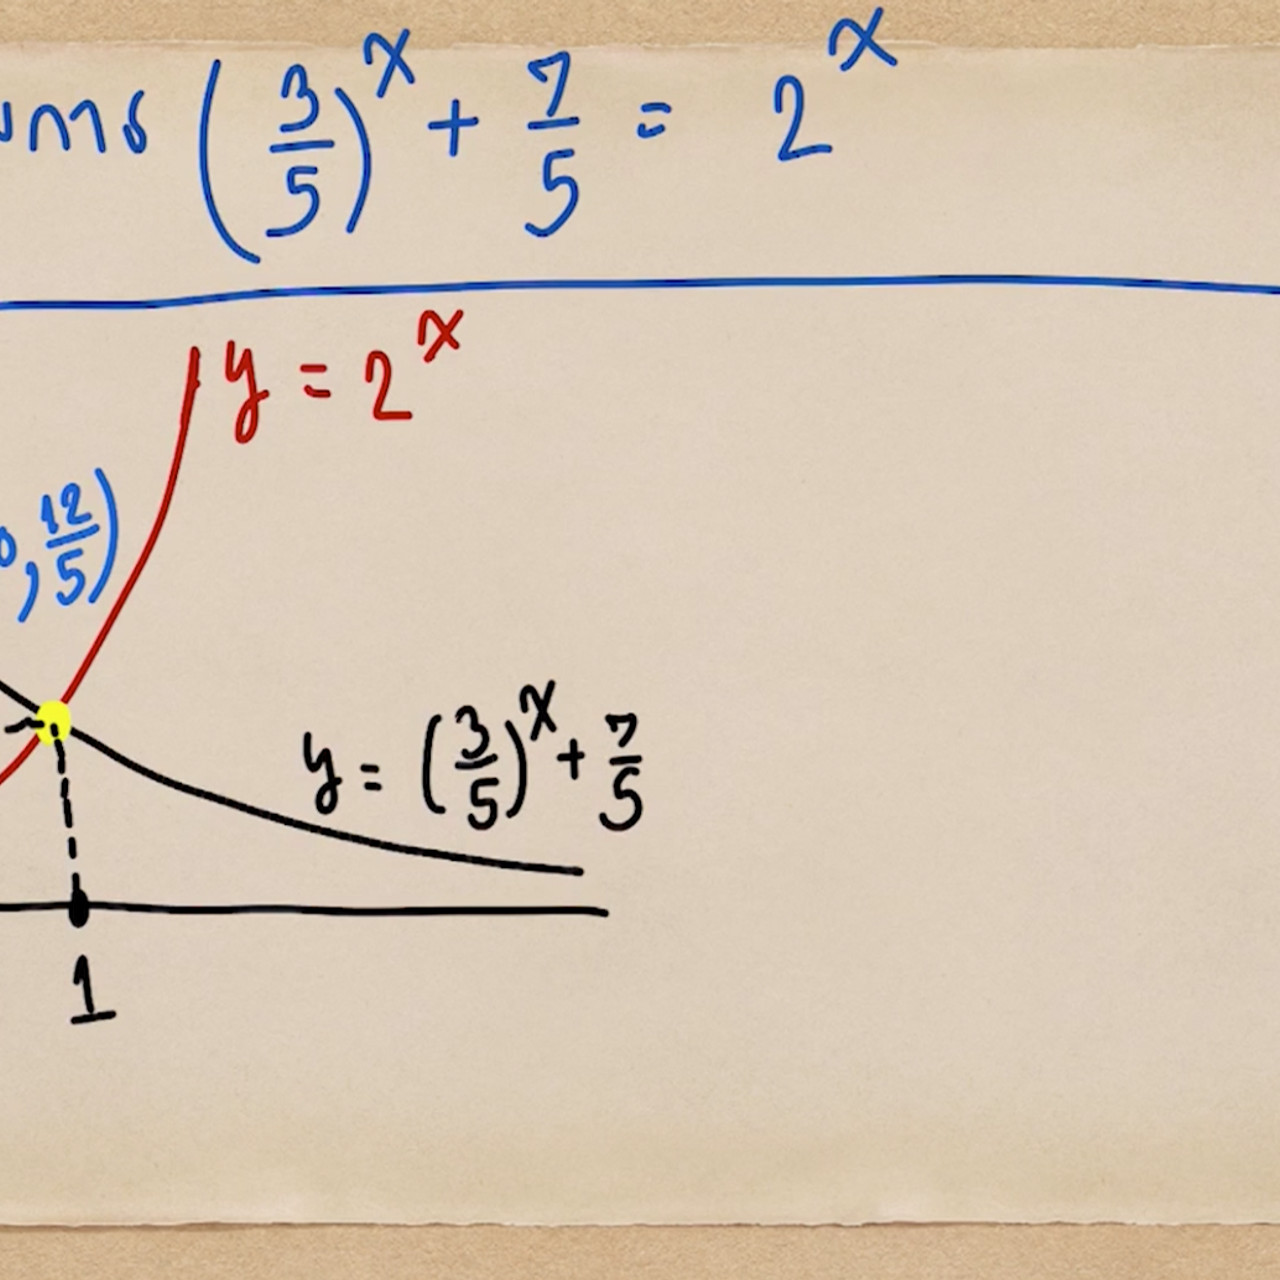 (3/5)^x + 7/5 = 2^x
y = 2^x
, 12/5)
y = (3/5)^x + 7/5
1